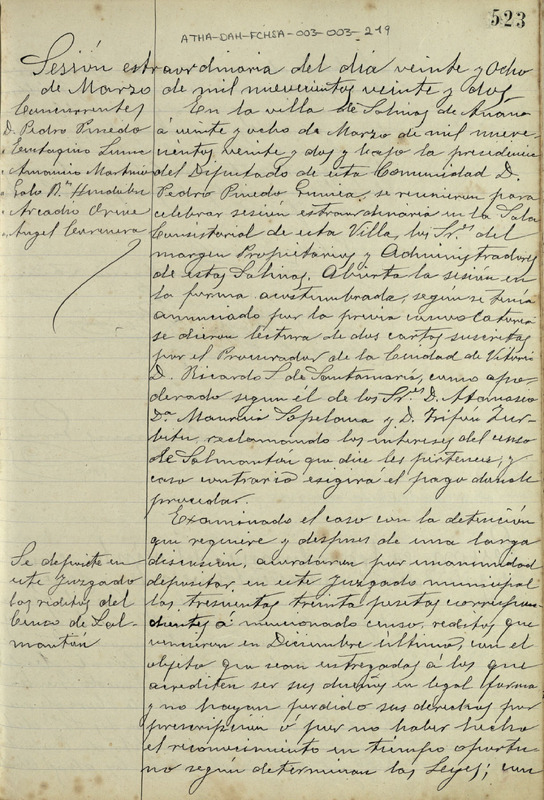 523
ATHA-DAH-FCHSA-003-003-219
Sesión extraordinaria del dia veinte y Ocho
de Marzo de mil nuevecientos veinte y dos
Concurrentes
D. Pedro Pinedo
" Eutaquio
" Antonino
" Galo
" Arcadio
" Angel
En la villa de Salinas de Añana
á veinte y ocho de Marzo de mil nueve-
cientos veinte y dos y bajo la presidencia
del Diputado de esta Comunidad D.
Pedro Pinedo se reunieron para
celebrar sesión extraordinaria en la Sala
Consistorial de esta Villa, los Sres del
margen Propietarios y Administradores
de estas Salinas. Abierta la sesión en
la forma acostumbrada, según se tenia
anunciado por la previa convocatoria
se dieron lectura de dos cartas suscritas
por el Procurador de la Ciudad de Vitoria
D. Ricardo S. de Santamaría, como apo-
derado según él de los Sres D. Atanasio
Da Mauricia Sopelana y D. Trifón
reclamando los intereses del censo
de Salmantón que dice les pertenece, y
caso contrario exigirá el pago donde
proceda.
Examinado el caso con la detención
que requiere y despues de una larga
discusión, acordaron por unanimidad
depositar en este Juzgado municipal
las trescientas treinta pesetas correspon-
dientes á mencionado censo, reditos que
vencieron en Diciembre último, con el
objeto que sean entregadas á los que
acrediten ser sus dueños en legal forma
y no hayan perdido sus derechos por
prescripción ó por no haber hecho
el reconocimiento en tiempo oportu-
no según determinan las Leyes; con
Se deposite en
este Juzgado
los reditos del
Censo de Sal-
mantón